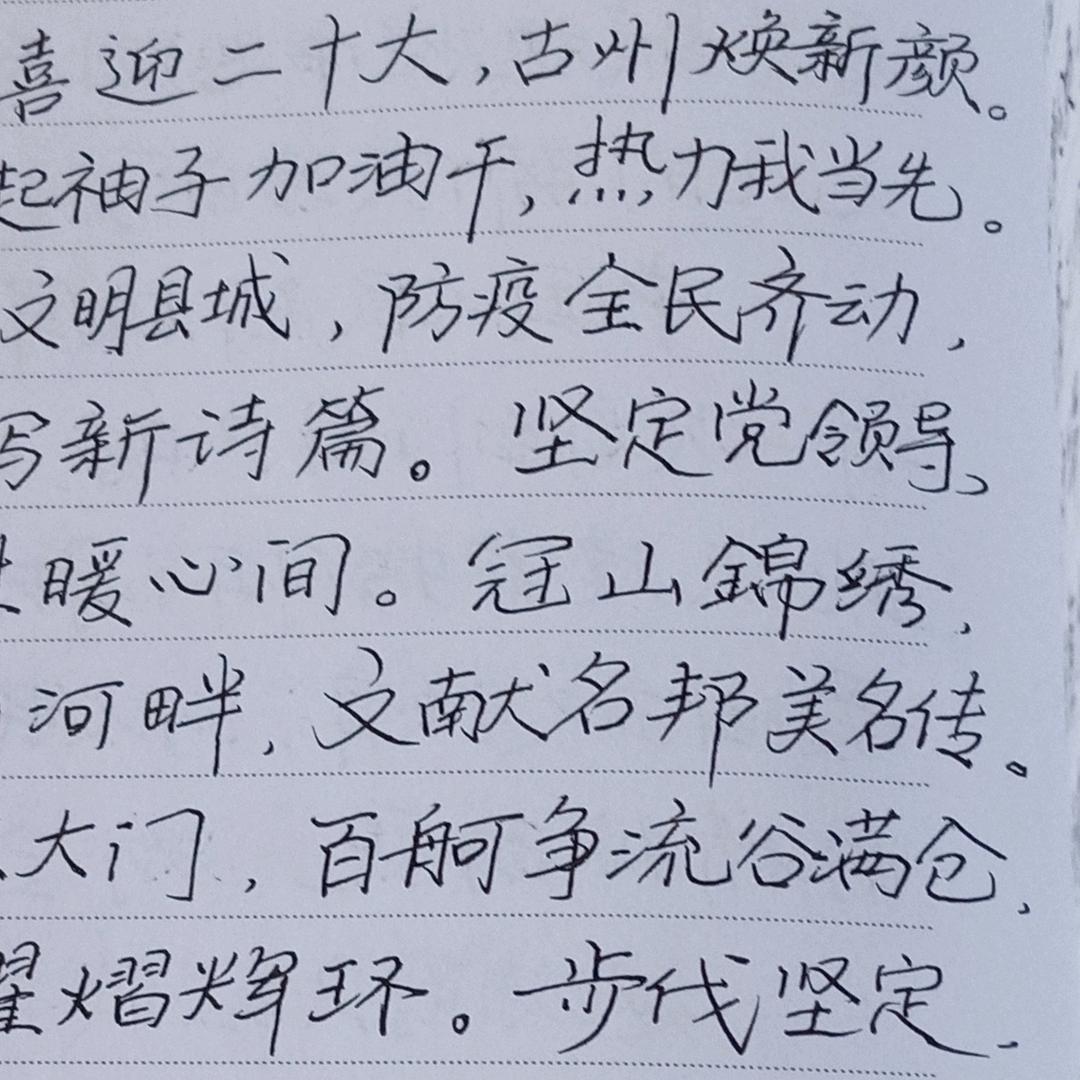 喜迎二十大,古州焕新颜。
起袖子加油干,热力我当先。
文明县城,防疫全民齐动,
写新诗篇。坚定党领导、
暖心间。冠山錦绣,
河畔,文献名邦美名传。
大门,百舸争流谷满仓,
熠辉环。步伐坚定,